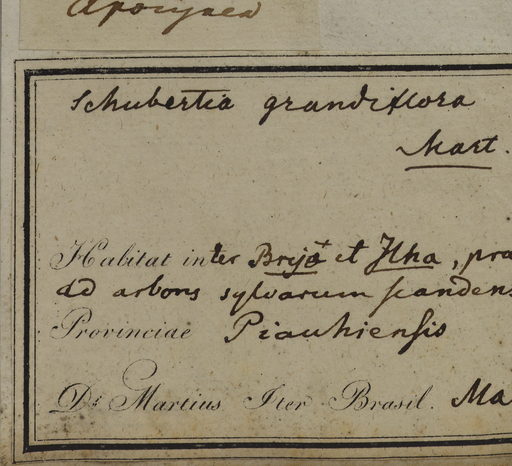 Apocynea
Schubertia grandiflora
Mart.
Habitat inter Brejo et Ilha, pra
ad arbores sylvarum scandens
Provinciae Piauhiensis
Dr. Martius Iter Brasil. Ma